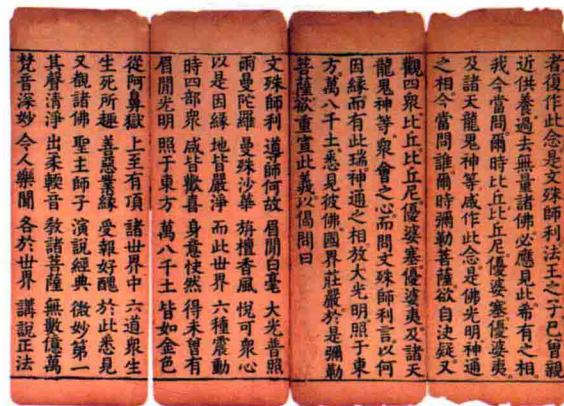 者復作此念是文殊師利法王之子已曾親
近供養過去無量諸佛必應見此希有之相
我今當問爾時比丘比丘尼優婆塞優婆夷
及諸天龍鬼神等咸作此念是佛光明神通
之相今當問誰爾時彌勒菩薩欲自決疑又
觀四衆比丘比丘尼優婆塞優婆夷及諸天
龍鬼神等衆會之心而問文殊師利言以何
因緣而有此瑞神通之相放大光明照于東
方萬八千土悉見彼佛國界莊嚴於是彌勒
菩薩欲重宣此義以偈問曰
文殊師利 導師何故 眉閒白毫 大光普照
雨曼陀羅 曼殊沙華 栴檀香風 悅可衆心
以是因緣 地皆嚴淨 而此世界 六種震動
時四部衆 咸皆歡喜 身意快然 得未曾有
眉閒光明 照于東方 萬八千土 皆如金色
從阿鼻獄 上至有頂 諸世界中 六道衆生
生死所趣 善惡業緣 受報好醜 於此悉見
又觀諸佛 聖主師子 演說經典 微妙第一
其聲清淨 出柔輭音 教諸菩薩 無數億萬
梵音深妙 令人樂聞 各於世界 講說正法